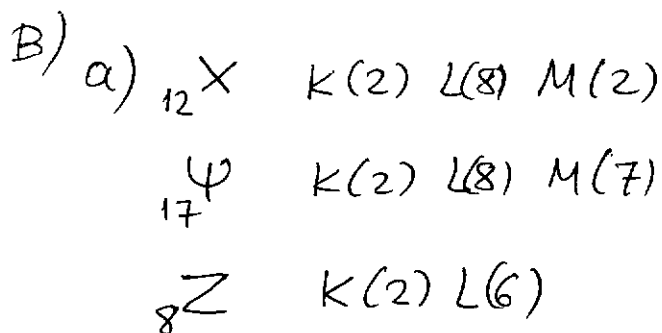 B) a) ₁₂X K(2) L(8) M(2)
₁₇Ψ K(2) L(8) M(7)
₈Z K(2) L(6)